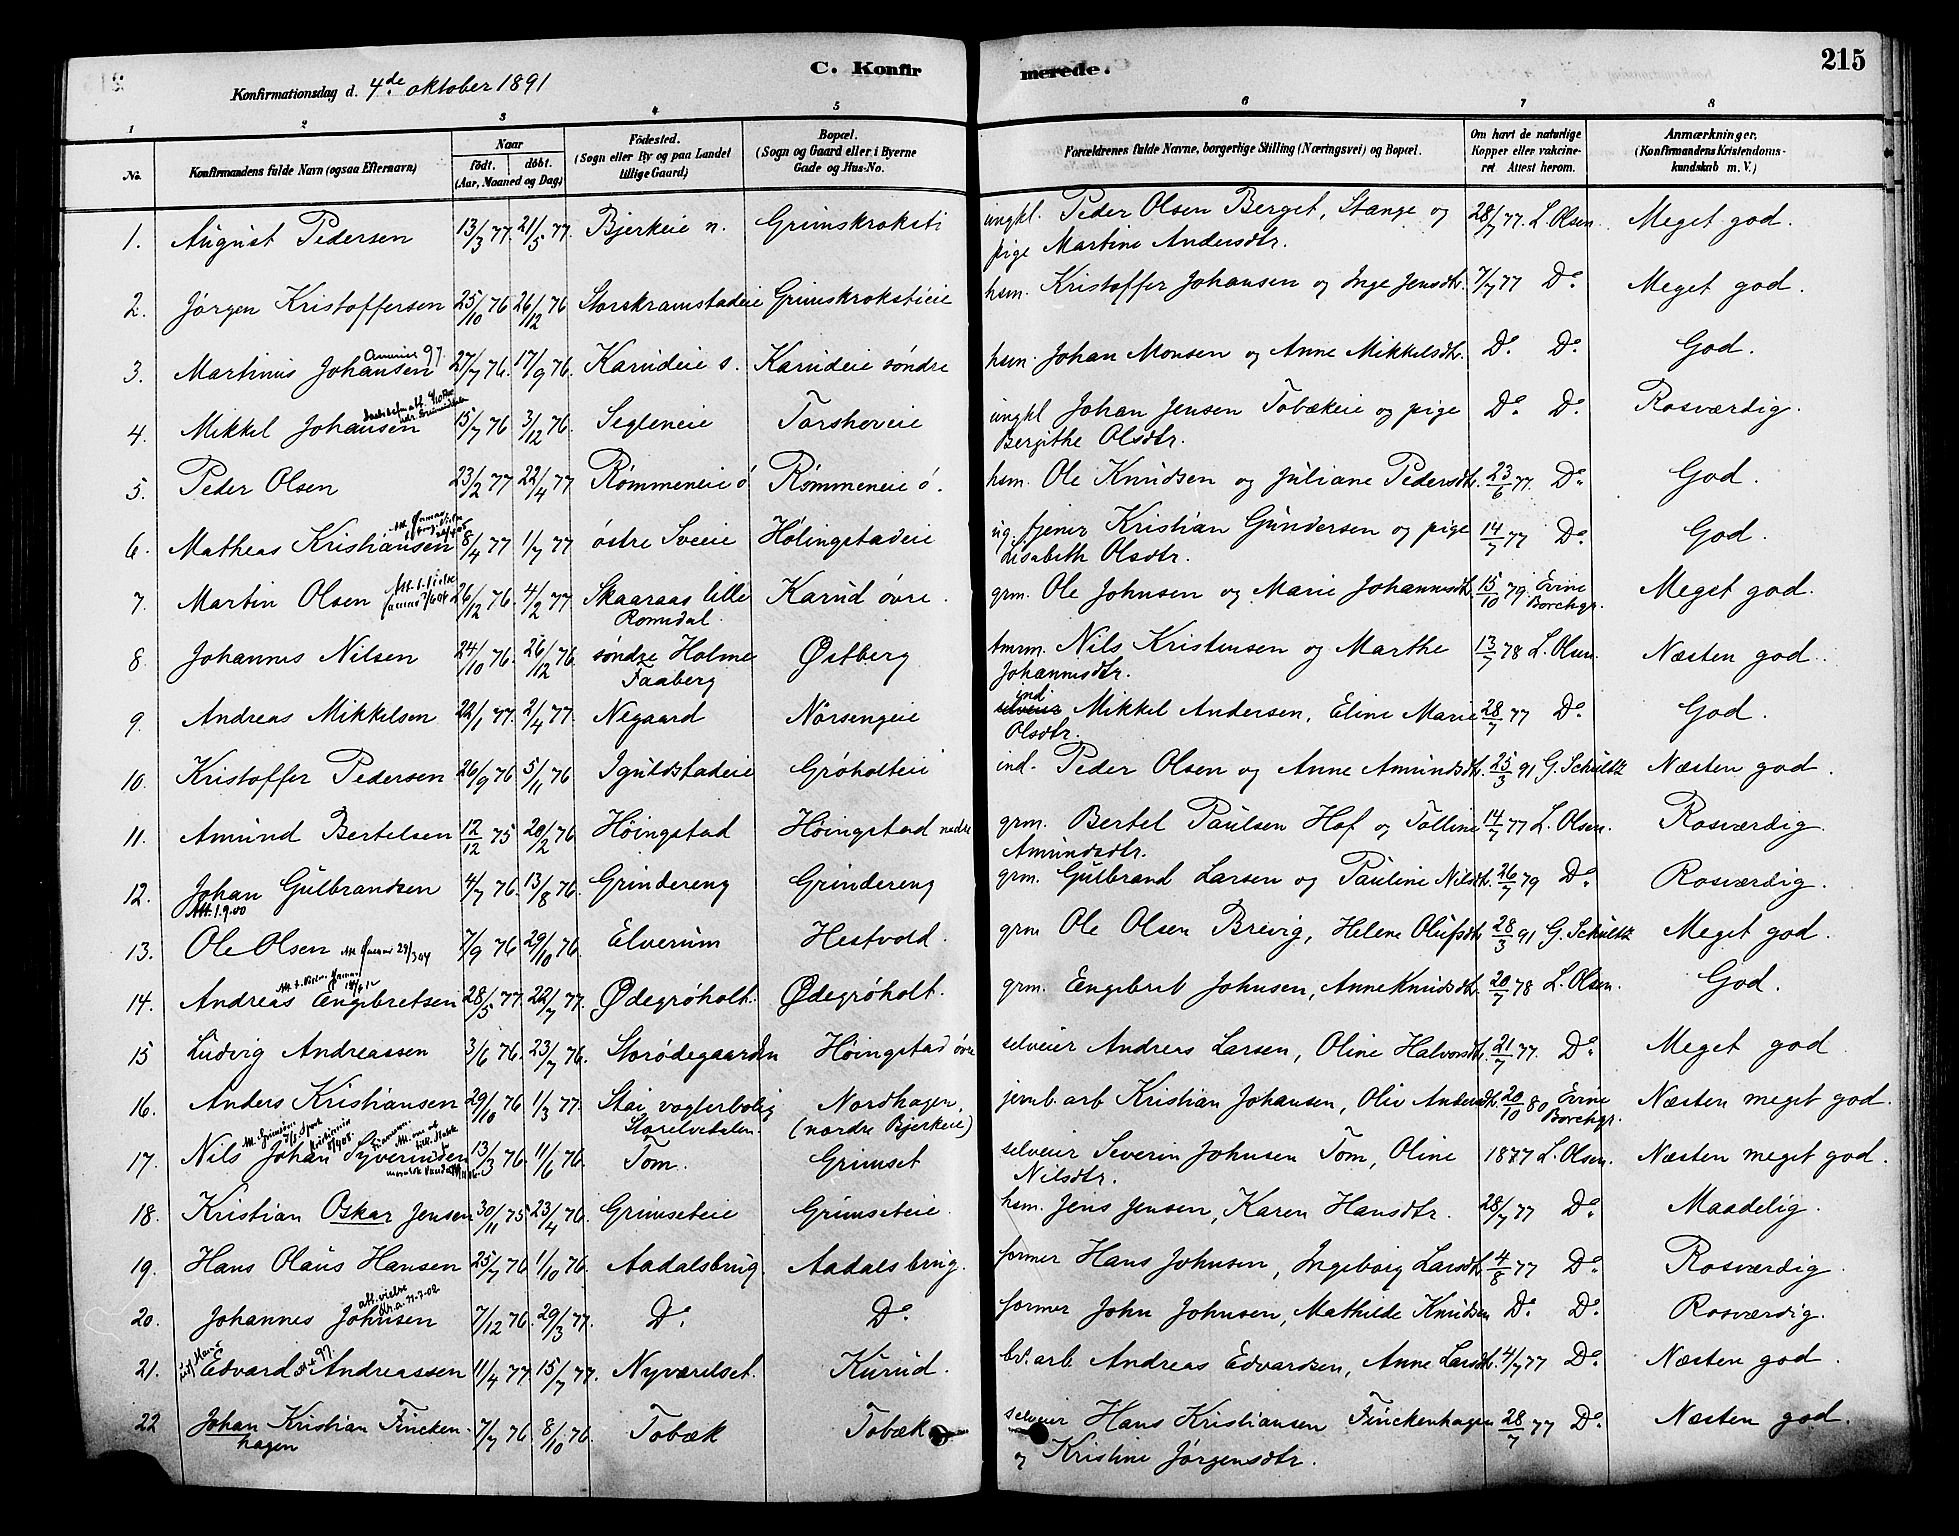 C. Konfirmerede.
215
Konfirmationsdag d. 4de oktober 1891
1 2 3 4 5 6 7 8
No. Konfirmandens fulde Navn (ogsaa Efternavn) Naar født. døbt. (Aar, Maaned og Dag) Fødested. (Sogn eller By og paa Landet tillige Gaard) Bopæl. (Sogn og Gaard eller i Byerne Gade og Hus-No. Forældrenes fulde Navne, borgerlige Stilling (Næringsvei) og Bopæl. Om havt de naturlige Kopper eller vakcineret Attest herom. Anmærkninger. (Konfirmandens Kristendomskundskab m. V.)
1. August Pedersen 13/3 77. 21/5 77. Bjerkeie n. Grimskroksti ungkl. Peder Olsen Berget, Stange og pige Martine Andersdtr. 28/7 77. L. Olsen. Meget god.
2. Jørgen Kristoffersen 25/10 76 26/12 76 Storskramstadeie Grimskrokstieie hsm. Kristoffer Johansen og Inge Jensdtr. 7/7 77 Do. Meget god.
3. Martinus Johansen 27/7 76. 17/9 76. Karudeie s. Karudeie søndre hsm. Johan Monsen og Anne Mikkelsdtr. Do. Do. God.
4. Mikkel Johansen 15/7 76 3/12 76. Segleneie Torshoveie ungkl Johan Jensen Tobækeie og pige Bergithe Olsdtr. Do. Do. Rosværdig.
5. Peder Olsen 23/2 77 22/4 77 Rømmeneie ø Rømmeneie ø. hsm. Ole Knudsen og Juliane Pedersdtr. 23/6 77. Do. God.
6. Matheas Kristiansen 8/4 77 1/7 77 østre Sveie Hølingstadeie ug. tjener Kristian Gundersen og pige Lisabeth Olsdtr. 14/7 77 Do. God.
7. Martin Olsen 26/12 76. 4/2 77 Skaaraas lille Romedal. Karud øvre. grm. Ole Johnsen og Marie Johannesdtr. 15/10 79. Evine Borchgr. Meget god.
8. Johannes Nilsen 24/10 76. 26/12 76. søndre Holme Faaberg Østberg tmrm. Nils Kristensen og Marthe Johannesdtr. 13/7 78 L. Olsen. Næsten god.
9. Andreas Mikkelsen 22/1 77. 2/4 77. Negaard Norsengeie ind Mikkel Andersen, Eline Marie Olsdtr. 28/7 77 Do. God.
10. Kristoffer Pedersen 26/9 76 5/11 76 Iguldstadeie Grøholteie ind. Peder Olsen og Anne Amundsdtr. 25/3 91 G. Schultz Næsten god.
11. Amund Bertelsen 12/12 75 20/2 76 Høingstad Høingstad nedre grm. Bertel Paulsen Hof og Tolline Amundsdtr. 14/7 77 L. Olsen. Rosværdig.
12. Johan Gulbrandsen 4/7 76. 13/8 76. Grindereng Grindereng grm. Gulbrand Larsen og Pauline Nilsdtr. 26/7 79 Do. Rosværdig.
Att. 1.9.00
13. Ole Olsen 7/9 76 29/10 76. Elverum Hestvold. grm Ole Olsen Brevig, Helene Olufsdtr 28/3 91 G. Schultz Meget god.
14. Andreas Engebretsen 28/5 77. 22/7 77. Ødegrøholt. Ødegrøholt. grm. Engebret Johnsen, Anne Knudsdtr. 20/7 78 L. Olsen. God.
15 Ludvig Andreassen 3/6 76. 23/7 76. Storødegaarden Høingstad øvre selveier Andreas Larsen, Oline Halvorsdtr. 21/7 77. Do. Meget god
16. Anders Kristiansen 29/10 76 1/3 77. Stai vogterbolig Storelvedalen. Nordhagen, (nordre Bjerkeie) jernb. arb Kristian Johansen, Oliv Andersdtr. 20/10 80 Evine Borchgr. Næsten meget god.
17. Nils Johan Syverinsen 13/3 76. 11/6 76. Tom. Grimset selveier Severin Johnsen Tom, Oline Nilsdtr. 1877 L. Olsen. Næsten meget god.
18. Kristian Oskar Jensen 30/11 75 23/4 76. Grimseteie Grimseteie. hsm. Jens Jensen, Karen Hansdtr. 28/7 77 Do. Maadelig.
19. Hans Olaus Hansen 25/7 76 1/10 76. Aadalsbrug. Aadalsbrug. former Hans Johnsen, Ingeborg Larsdtr. 4/8 77 Do. Rosværdig.
20. Johannes Johnsen 7/12 76. 29/3 77. Do. Do. former John Johnsen, Mathilde Knudsen Do. Do. Rosværdig.
21. Edvard Andreassen 11/4 77 15/7 77. Nyværelset. Kurud. br. arb Andreas Edvardsen, Anne Larsdtr. 4/7 77 Do. Næsten god.
22 Johan Kristian Finckenhagen 7/7 76 8/10 76. Tobæk Tobæk selveier Hans Kristiansen Finckenhagen og Kristine Jørgensdtr. 28/7 77 Do. Næsten god.